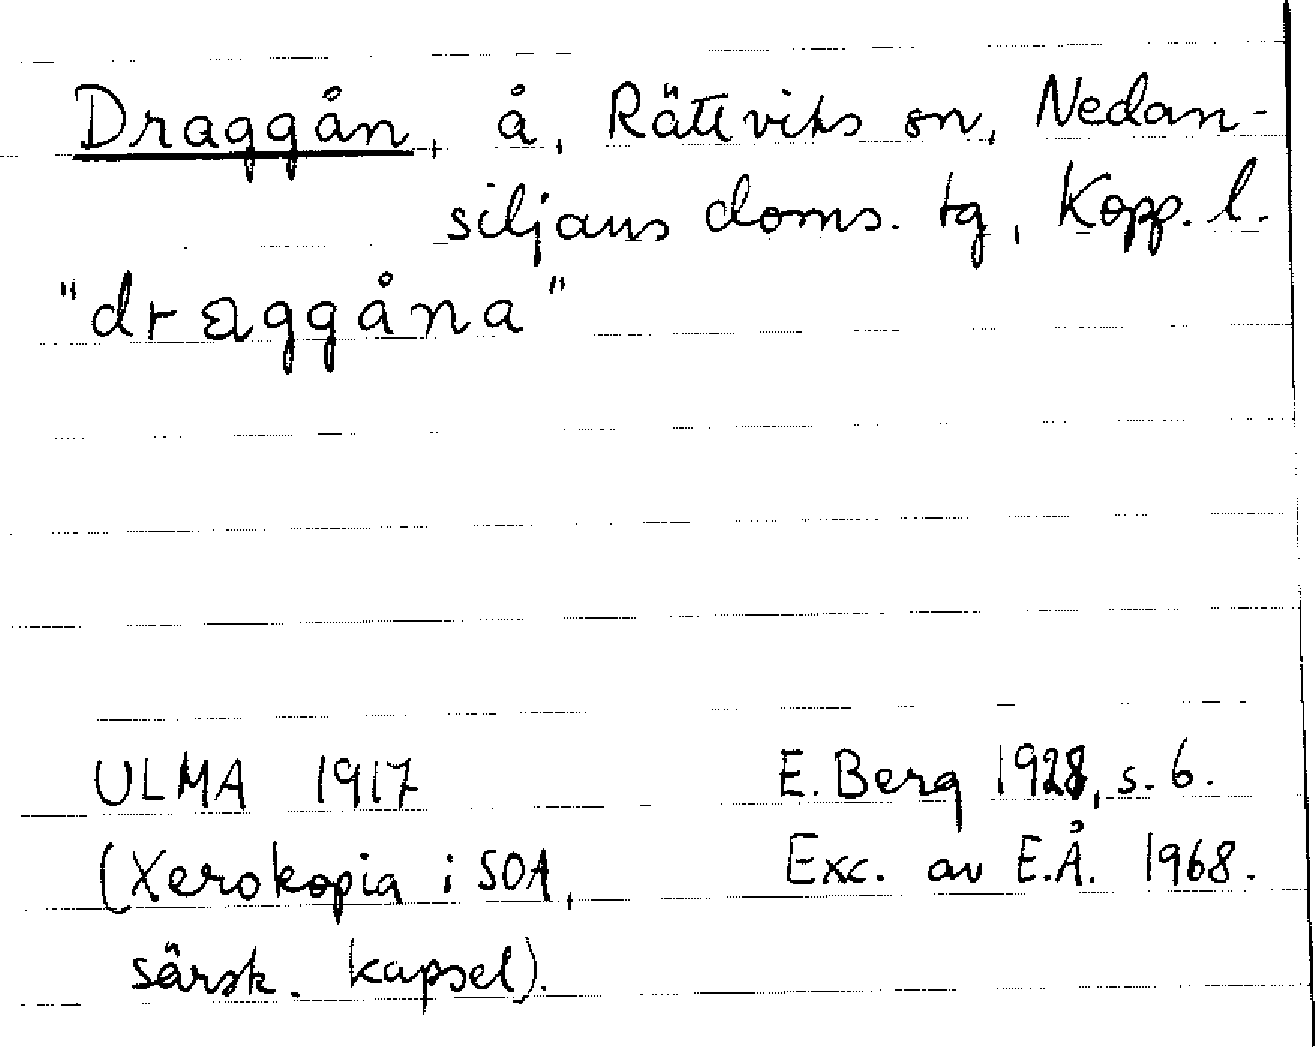 Draggån, å, Rättviks sn, Nedan-
siljans doms. tg, Kopp. l.
"draggåna"
ULMA 1917
(Xerokopia i SOA,
särsk. kapsel).
E. Berg 1928, s. 6.
Exc. av E.Å. 1968.